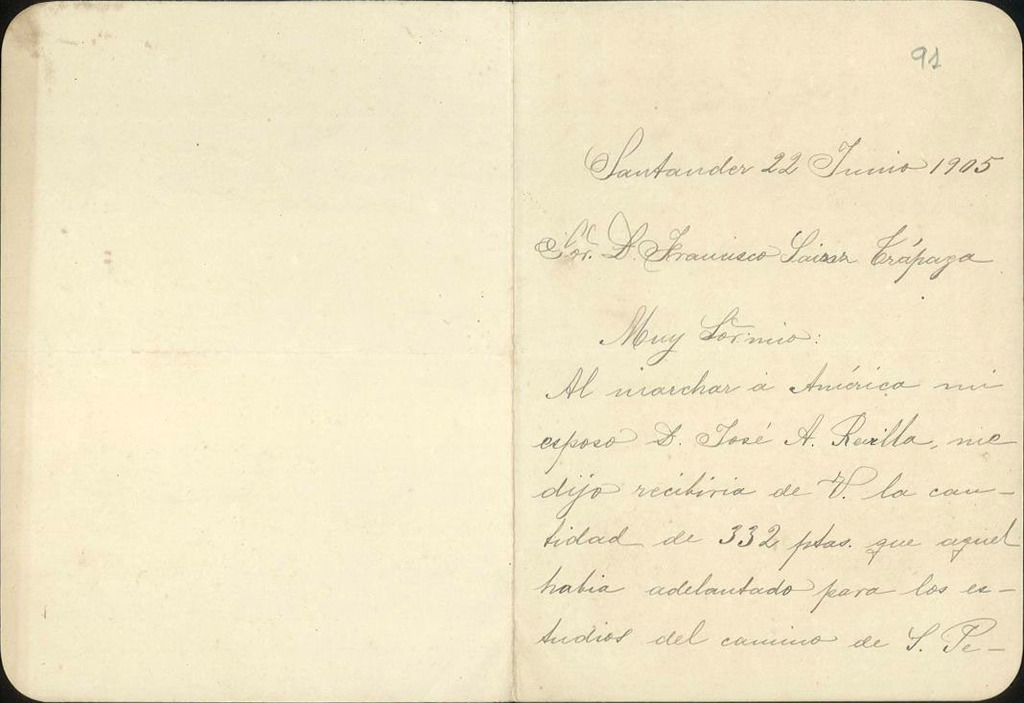 91
Santander 22 Junio 1905
Sr. D. Francisco Sainz Trápaga
Muy Sor. mio:
Al marchar á América mi
esposo D. José A. Revilla, me
dijo recibiria de V. la can-
tidad de 332 ptas. que aquel
habia adelantado para los es-
tudios del camino de S. Pe-